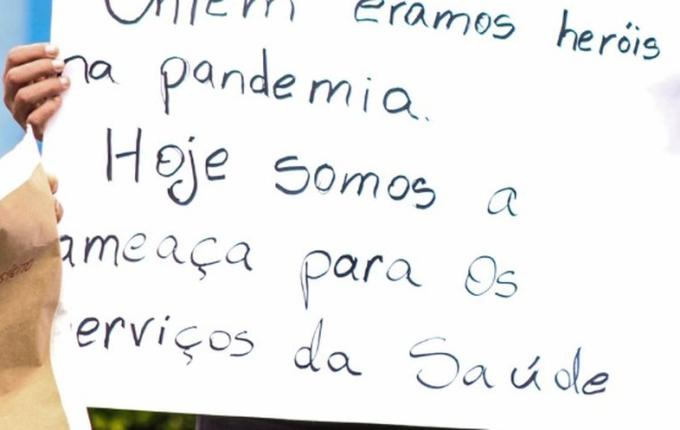 Ontem éramos heróis
na pandemia.
Hoje somos a
ameaça para os
serviços da Saúde